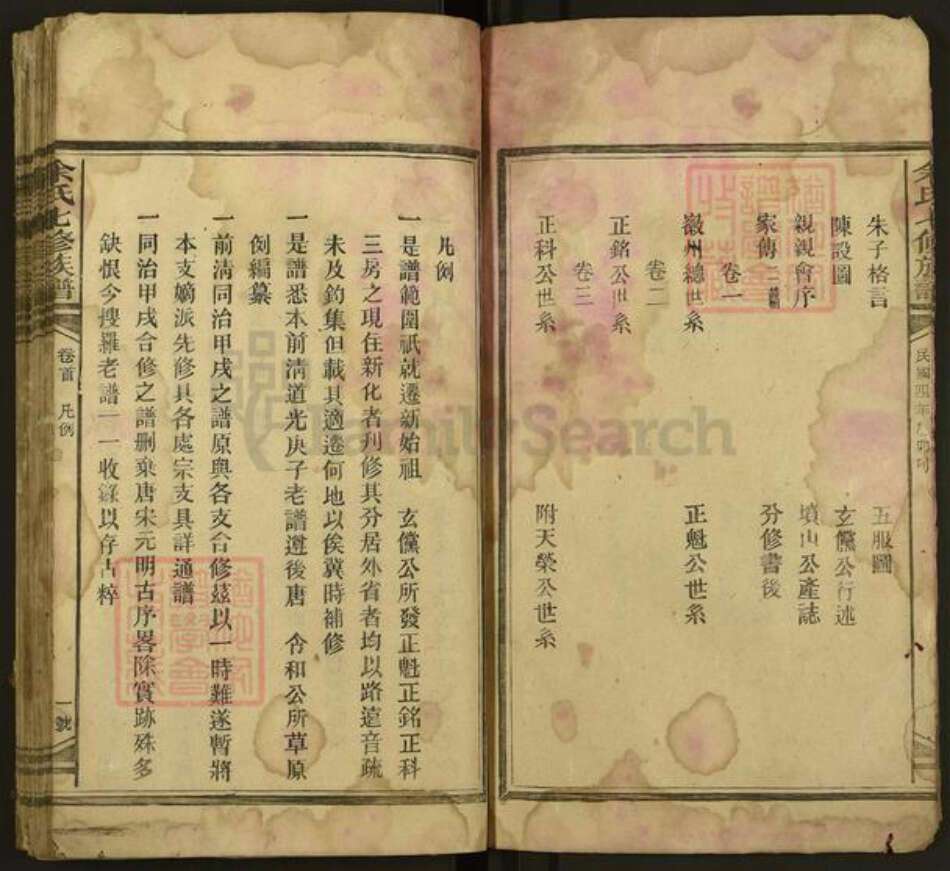 朱子格言 五服圖
陳設圖 玄儻公行述
親親會序 墳山公產誌
家傳 分修書後
卷一
嶽州總世系 正魁公世系
卷二
正銘公世系
卷三
正科公世系 附天榮公世系
余氏七修族譜
民國四年乙卯
余氏七修族譜 卷首 凡例 一號
凡例
一是譜範圍祇就遷新始祖 玄儻公所發正魁正銘正科
三房之現住新化者刋修其分居外省者均以路遠音疏
未及釣集但載其適遷何地以俟冀時補修
一是譜悉本前淸道光庚子老譜遵後唐 含和公所草原
例編纂
一前淸同治甲戌之譜原與各支合修茲以一時難遂暫將
本支嫡派先修其各處宗支具詳通譜
一同治甲戌合修之譜删棄唐宋元明古序畧除實跡殊多
缺恨今搜羅老譜一一收錄以存古粹
FamilySearch